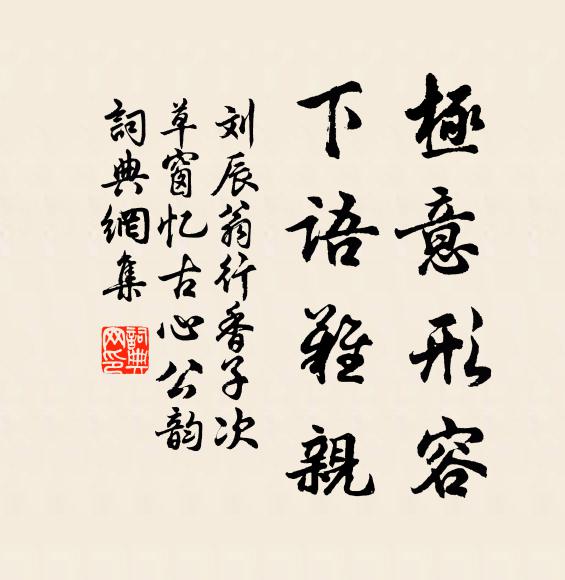 極意形容
下語難親
刘辰翁行香子次
草窗忆古心公韵
詞典網集
詞典網印